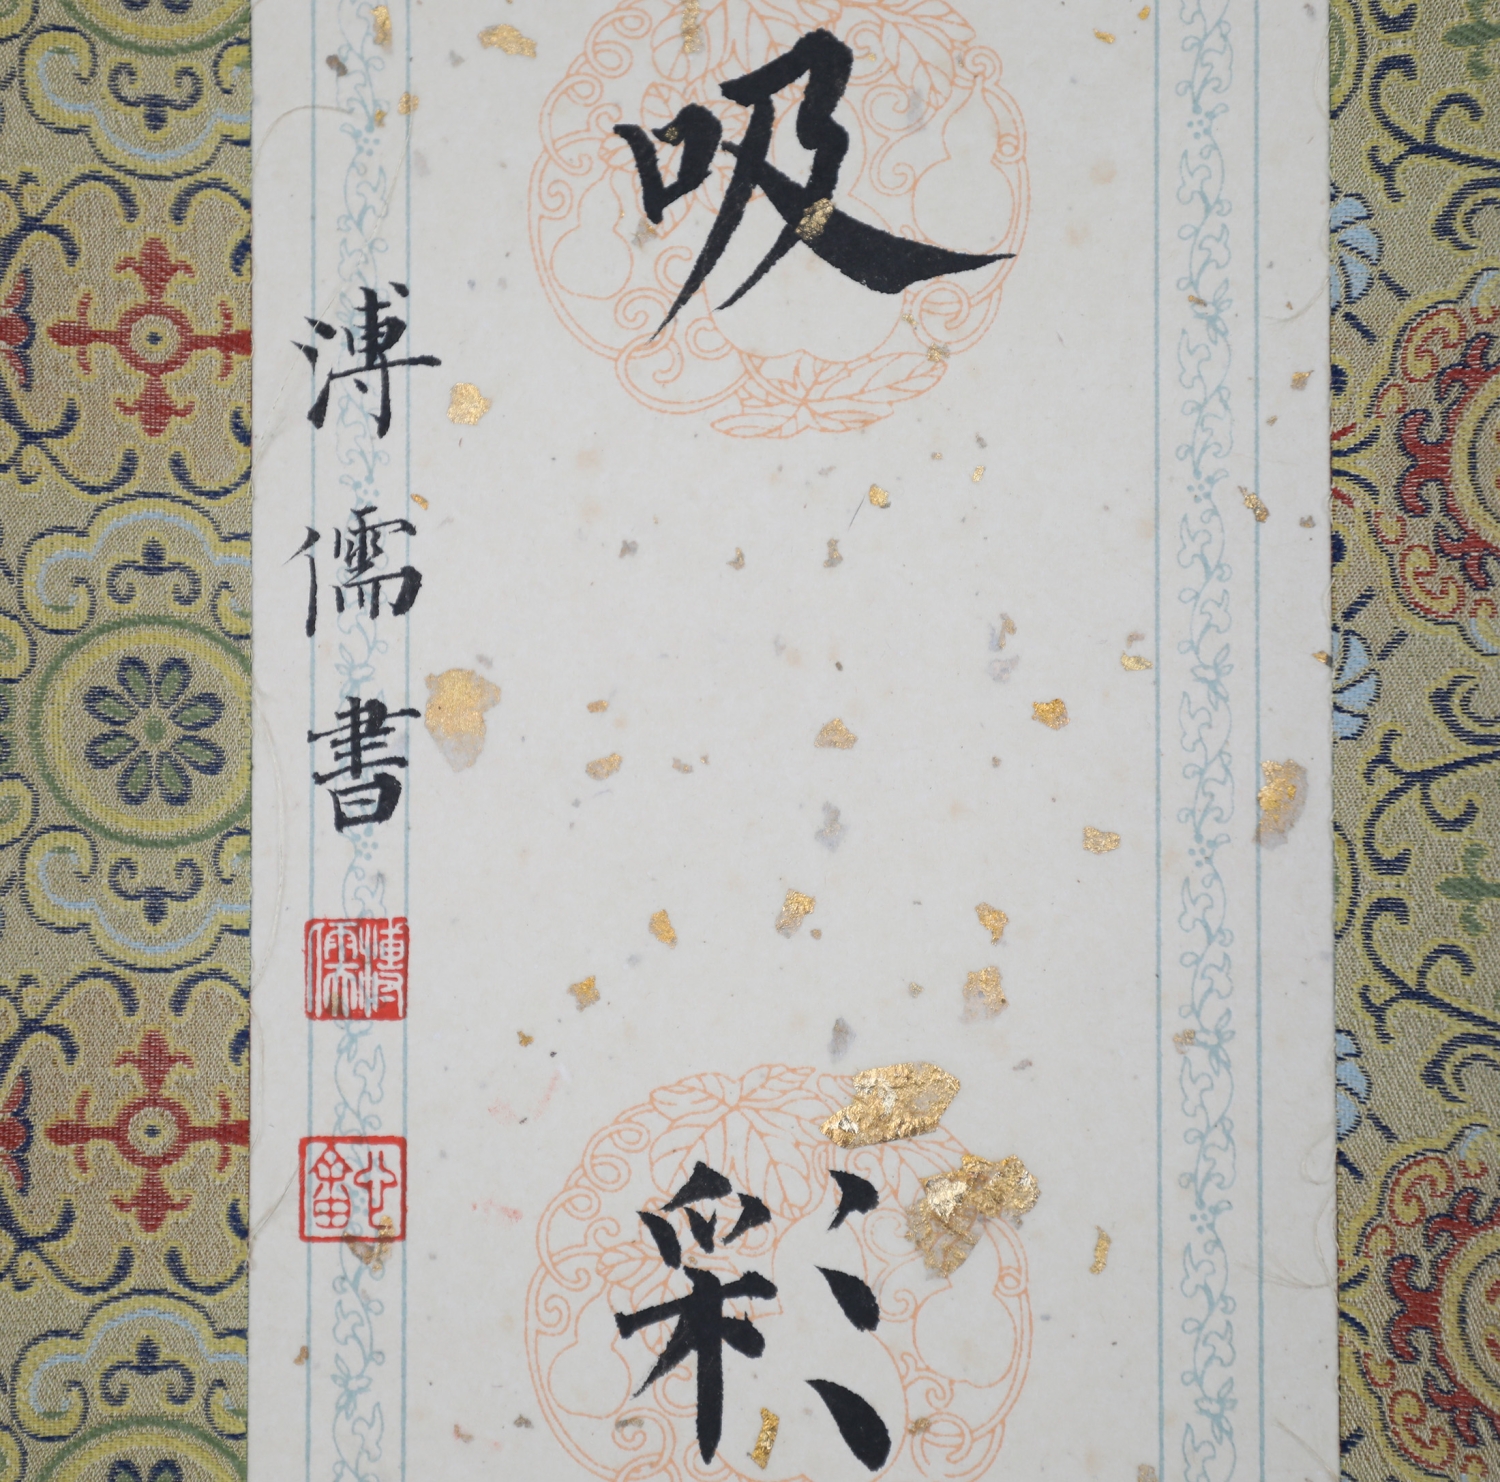 吸彩
溥儒書
溥儒